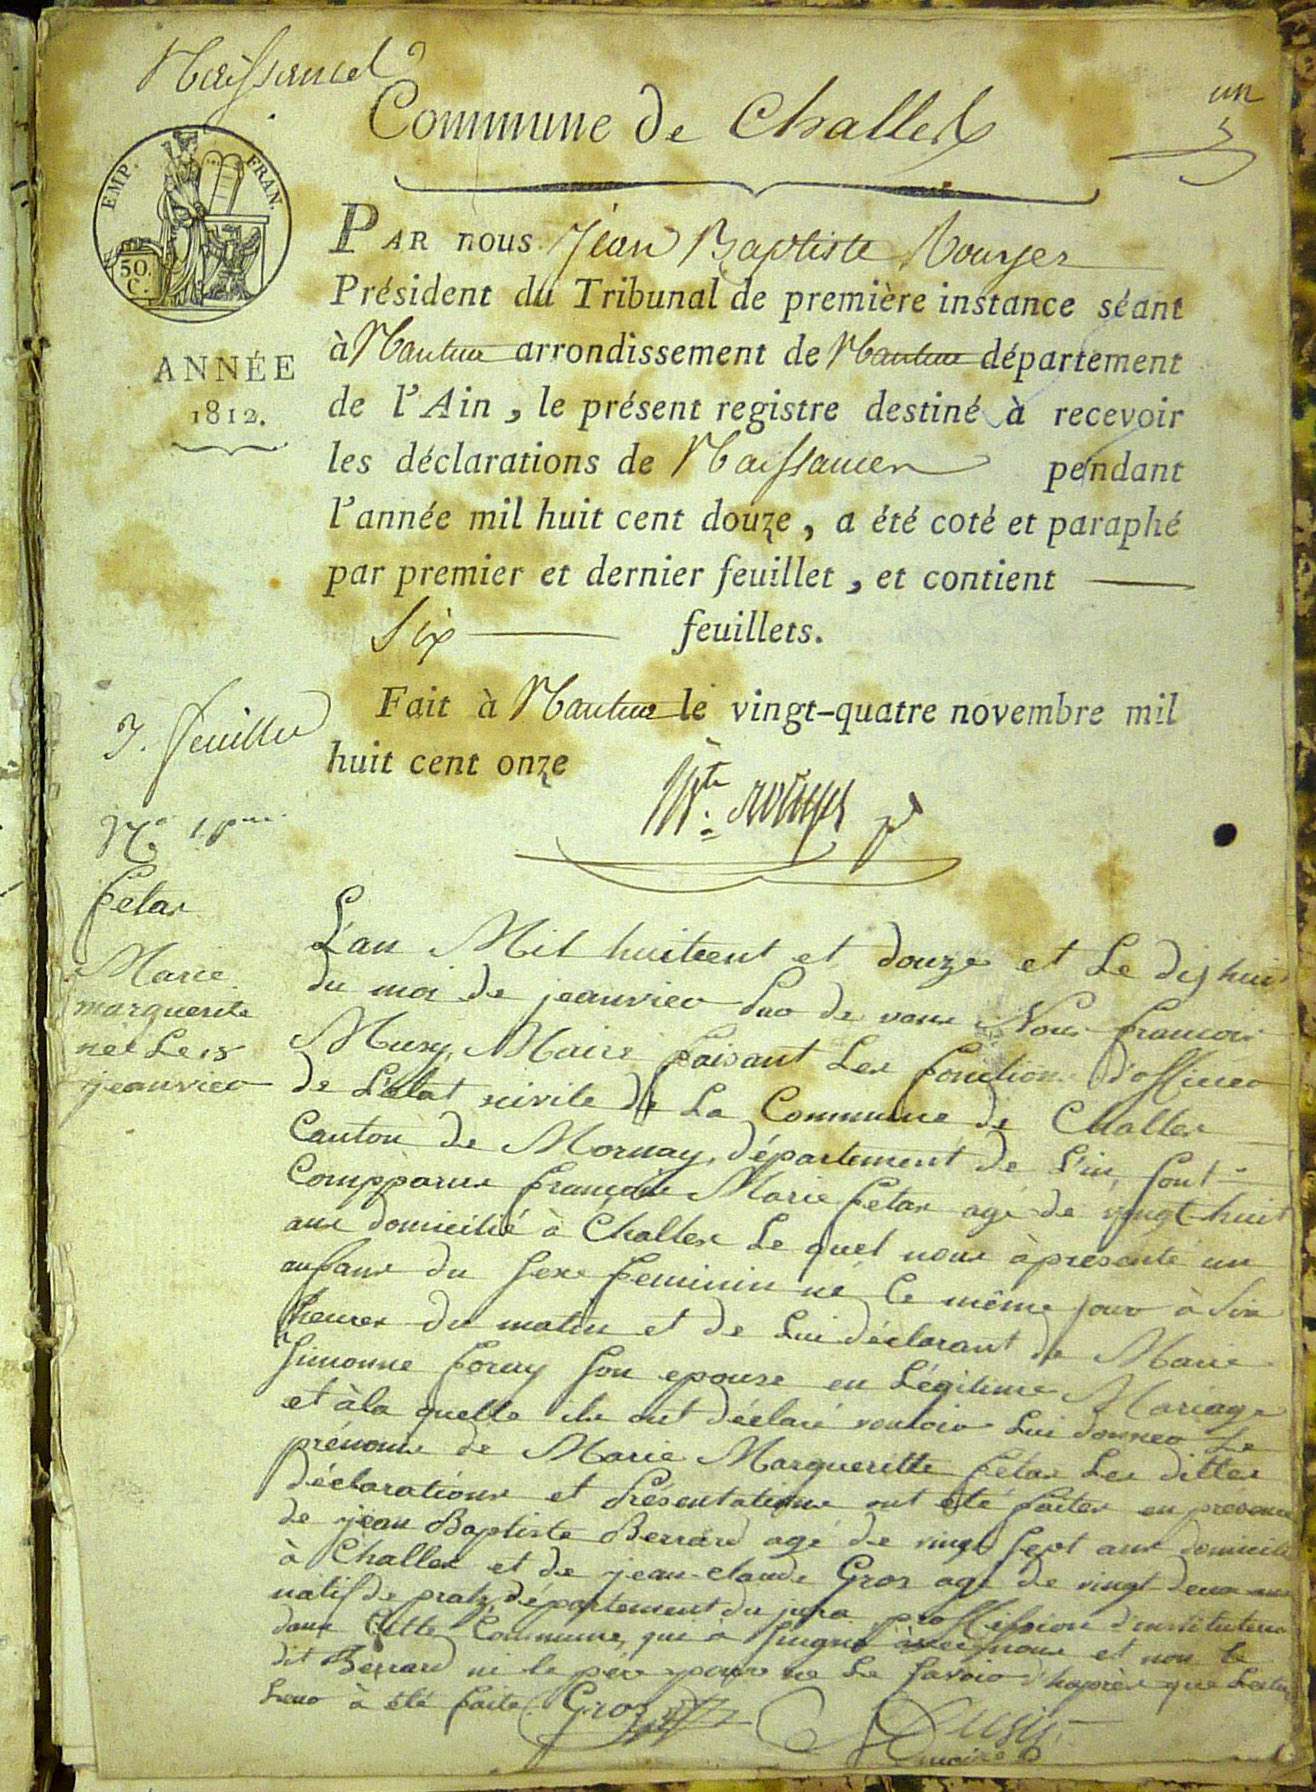 Naissances
Commune de Challes
un
EMP. FRAN.
50.
C.
ANNÉE
1812.
PAR nous Jean Baptiste Rouyer
Président du Tribunal de première instance séant
à Nantua arrondissement de Nantua département
de l'Ain, le présent registre destiné à recevoir
les déclarations de Naissances pendant
l'année mil huit cent douze, a été coté et paraphé
par premier et dernier feuillet, et contient
Six feuillets.
Fait à Nantua le vingt-quatre novembre mil
huit cent onze
feuillet
Fetas
Marie
marguerite
née Le 18
jeanvier
L'an Mil huitcent et douze et Le dishuit
du moi de jeanvier Nous francois
Musy, Maire faisant Les fonction d'officier
de L'etat sivile de La Commune de Challes
Canton de Mornay, département de L'in, sont
Comppârus francois Marie fetas agé de vingt-huit
ans domicilié à Challes Le quel nous à présenté un
anfans du sexe feminin né Ce même jour à six
heures du matin et de Lui déclarant de Marie
Simonne foray son epouse en Légitime Mariage
et àla quelle ils ont déclaré vouloir Lui donner Le
prénoms de Marie Margueritte fétas Les dittes
déclarations et Présentations ont été faites en presence
de jean Baptiste Berrard agé de vingt sept ans domicilié
à Challes et de jean-claude Gros agé de vingt deux ans
natif de pratz, département du jura proffession d'instituteur
dans Cette Commune, qui a singné avec nous et non le
dit Berrard ni le père pour ne Le savoir d'haprès que Lectu
à été faite. Gros Musy
maire